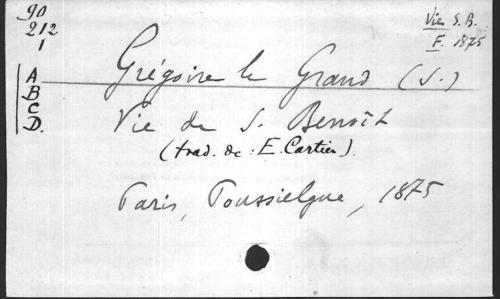 90
212
1
Vie S. B.
F. 1875
A
B
C
D.
Grégoire le Grand (S.)
Vie de S. Benoît
(trad. de : E. Cartier).
Paris, Poussielgue, 1875